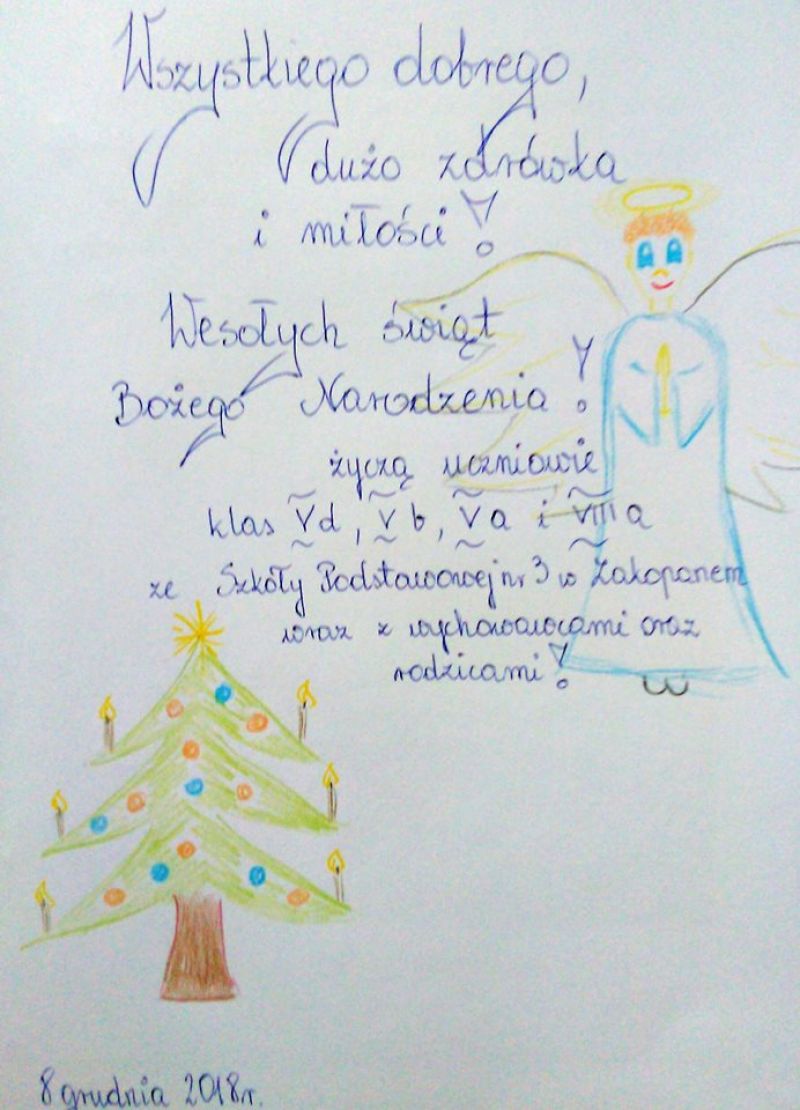 Wszystkiego dobrego,
dużo zdrówka
i miłości!
Wesołych świąt
Bożego Narodzenia!
życzą uczniowie
klas Vd, Vb, Va i VIII a
ze Szkoły Podstawowej nr 3 w Zakopanem
wraz z wychowawcami oraz
rodzicami!
8 grudnia 2018r.